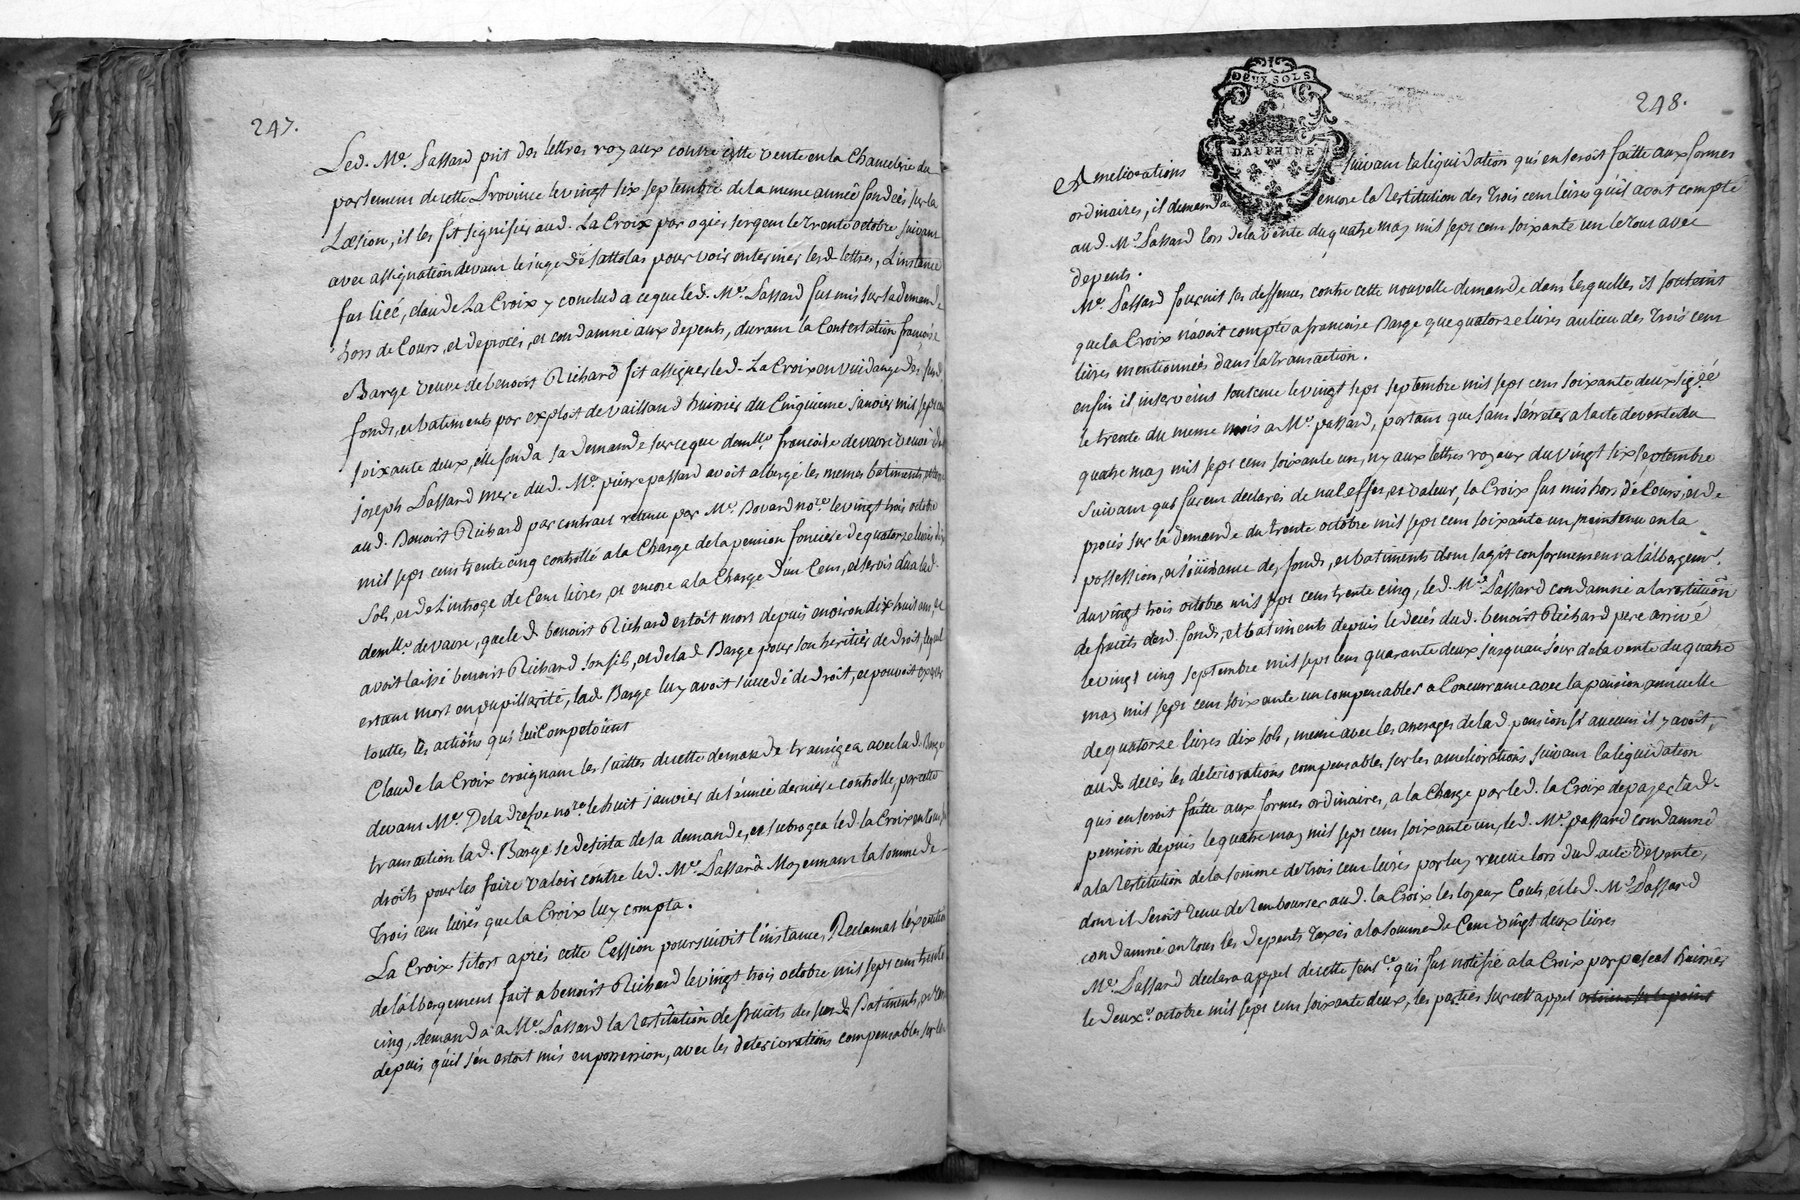 247.
Led. Me. Passard prit des lettres royaux contre cette vente en la Chancelerie du
parlement de cette Province le vingt six septembre de la meme année fondées sur la
Læsion, il les fit signifier aud. La Croix par ogier sergent le trente octobre suivant
avec assignation devant le juge de sattolas pour voir enteriner lesd lettres, L'instance
fut liée, claude La Croix y conclud a ce que led. Me. Passard fut mis sur sa demande
hors de Cours, et de procès, et condamné aux depents, durant la Contestation françoise
Barge veuve de benoit Richard fit assigner led. La Croix en vuidange des susd
fonds, et batiments par exploit de vailland huissier du Cinquieme janvier mil sept cent
soixante deux, elle fonda sa demande sur ce que demlle. françoise de vavre veuve de
joseph Passard mere dud. Me. pierre passard avoit albergé les memes batiments, et
aud. Benoit Richard par contract retenu par Me. Bovard nore. le vingt trois octobre
mil sept cent trente cinq controllé a la Charge de la pension fonciere de quatorze livres dix
sols, et de L'introge de Cent livres, et encore a la Charge d'un Cens, et servis dû a lad.
demlle. de vavre, que led. benoit Richard estoit mort depuis environ dix huit ans, et
avoit laissé benoit Richard son fils, et de lad Barge pour son heritier de droit, lequel
estant mort en pupillarité, lad. Barge luy avoit succedé de droit, et pouvoit exercer
touttes les actions qui lui Competoient
Claude la Croix craignant les suittes de cette demande transigea avec lad. Barge
devant Me. Deladreſve nore. le huit janvier de l'année derniere controllé, par cette
transaction lad. Barge se desista de sa demande, et subrogea led. la Croix en tous
droits pour les faire valoir contre led. Me. Passard Moyennant la somme de
trois cent livres que la Croix luy compta.
La Croix sitost après cette Cession poursuivit l'instance, Reclamat l'execution
de l'albergement fait a benoit Richard le vingt trois octobre mil sept cent trente
cinq, demanda a Me. Passard la Restitution de fruits des susd. batiments, et
depuis qu'il s'en estoit mis en possession, avec les deteriorations compensables sur les
248.
DEUX SOLS
DAUPHINÉ
Ameliorations suivant la liquidation qui en seroit faitte aux formes
ordinaires, il demanda encore la Restitution des trois cent livres qu'il avoit compté
aud. Me. Passard lors de la vente du quatre may mil sept cent soixante un le tout avec
depents.
Me. Passard fournit ses deffences contre cette nouvelle demande dans lesquelles il soutaint
que la Croix n'avoit compté a françoise Barge que quatorze livres au lieu des trois cent
livres mentionnées dans la transaction.
enfin il intervint sentence le vingt sept septembre mil sept cent soixante deux sig.ée
le trente du meme mois a Me. passard, portant que sans s'arreter a l'acte de vente du
quatre may mil sept cent soixante un, ny aux lettres royaux du vingt six septembre
suivant qui furent declarés de nul effet, et valeur, la Croix fut mis hors de Cours, et de
procès sur la demande du trente octobre mil sept cent soixante un, maintenu en la
possession, et jouissance des fonds, et batiments dont s'agit conformement a l'albergemt.
du vingt trois octobre mil sept cent trente cinq, led. Me. Passard condamné a la restitution
de fruits desd. fonds, et batiments depuis le decés dud. benoit Richard pere arrivé
le vingt cinq septembre mil sept cent quarante deux jusqu'au jour de la vente du quatre
may mil sept cent soixante un compensables a Concurrance avec la pension annuelle
de quatorze livres dix sols, meme avec les arrerages de lad. pension si aucuns il y avoit,
aud. decés les deteriorations compensables sur les ameliorations suivant la liquidation
qui en seroit faitte aux formes ordinaires, a la Charge par led. la Croix de payer lad.
pension depuis le quatre may mil sept cent soixante un, led. Me. passard condamné
a la Restitution de la somme de trois cent livres par luy receue lors dud acte de vente,
dont il seroit tenu de Rembourser aud. la Croix les loyaux Couts, et led. Me. Passard
condamné en tous les depents taxés a la somme de Cent vingt deux livres
Me. Passard declara appel de cette sence. qui fut notifié a la Croix par pascal huissier
le deuxe. octobre mil sept cent soixante deux, les parties sur cet appel